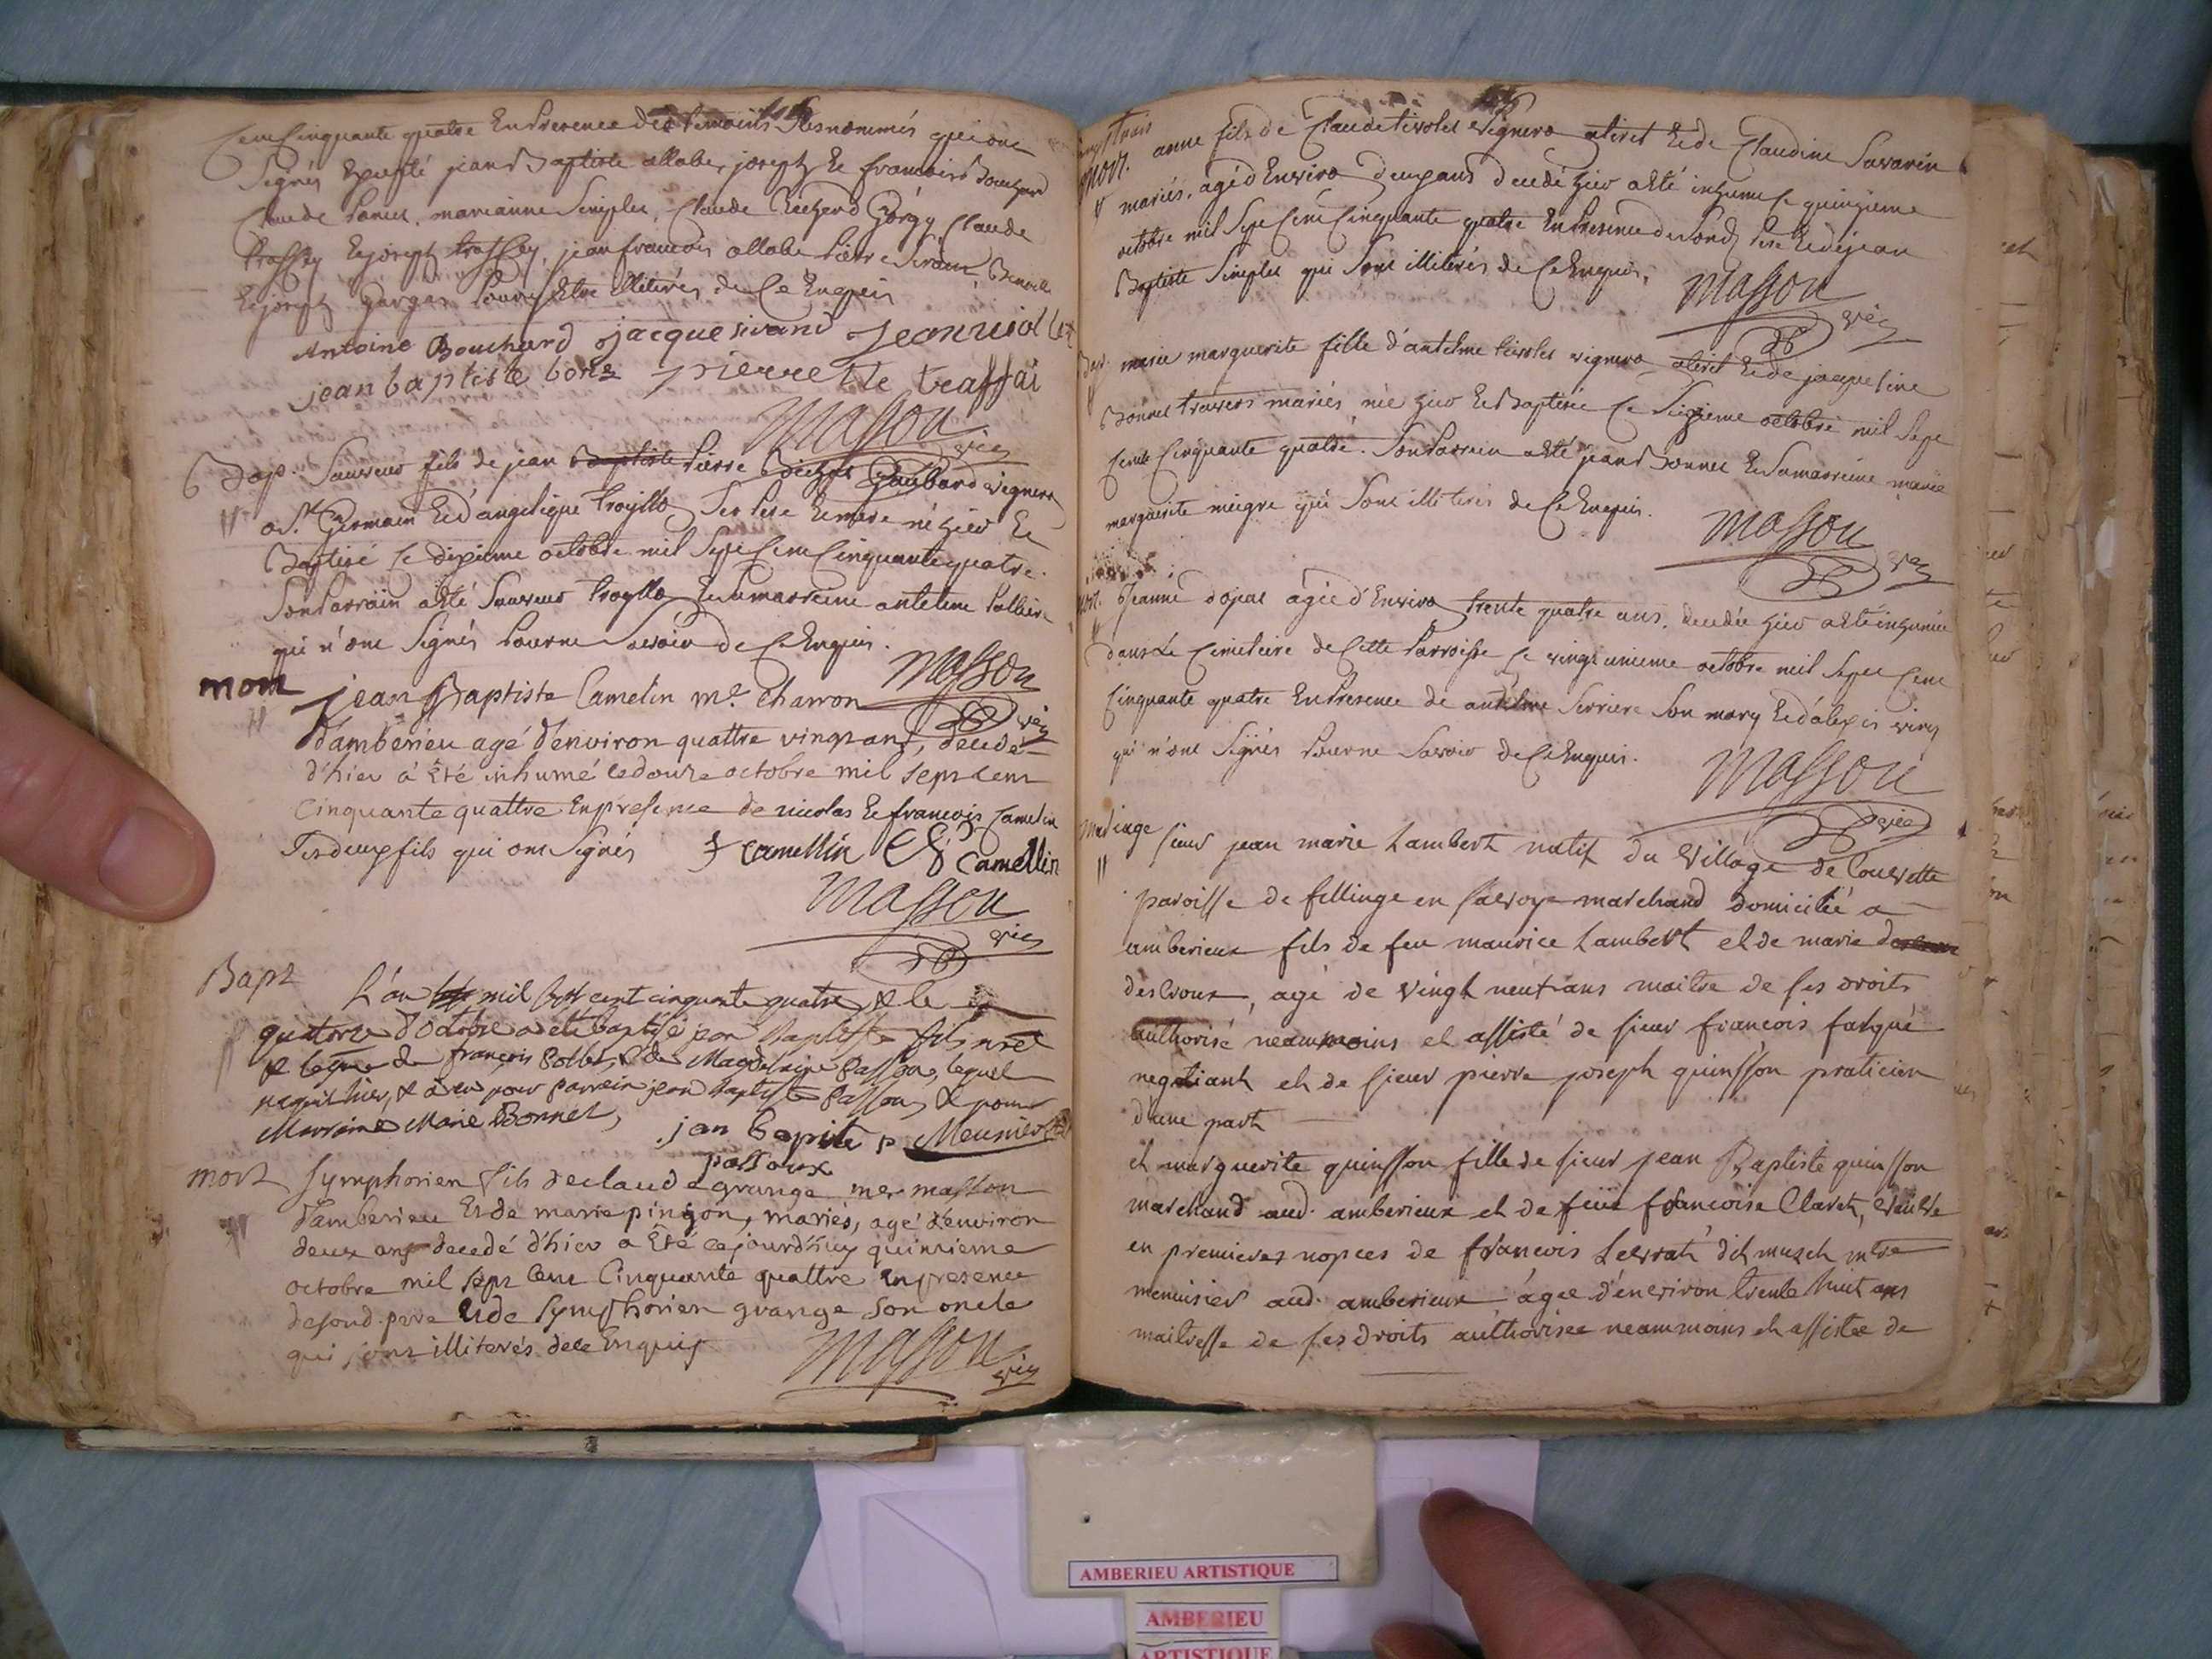 Cent Cinquante quatre En Presence des temoins Susnommés qui ont
Signés Excepté jean Baptiste allabe, joseph Et francois Bouchard
Claude marianne Simples, Claude Richerd Görgy Claude
traffey Et joseph traffey, jean francois allabe Pierre Sirand
Et joseph gargan Pour Etre illiterés de Ce Enquis
Antoine Bouchard jacque sirand Jean
jean baptiste bone pierrette traffai
Masson vic
Bap. Sauveur fils de jean Baptiste Pierre Gaubard vigneron
a St. Germain Et d'angelique trogllo Ses Pere Et mere né hier Et
Baptisé Ce dixieme octobre mil Sept Cent Cinquante quatre.
Son Parrain a Eté Sauveur trogllo Et Sa marreine antelme
qui n'ont Signés Pour ne Savoir de Ce Enquis.
Masson vic
mort jean Baptiste Camelin me. Charron
d'amberieu agé d'environ quattre vingt ans, decedé
d'hier à Eté inhumé le douze octobre mil sept cent
Cinquante quattre En presence de nicolas Et francois Camelin
Ses deux fils qui ont Signés f camellin Camellin
Masson vic
Bapt L'an mil sept cent cinquante quatre & le
quatorze d'octobre a eté baptisé jean Baptiste fils nrel
& legme de françois Bollet, & de Magdelaine Passou, lequel
naquit hier, & a eu pour parrain jean Baptiste Passou, & pour
Marraine Marie Bonnet, jan bapite p Meunier
passoux
mort Symphorien fils de claude grange mer masson
d'amberieu Et de marie pingon, mariés, agé d'environ
deux ans decedé d'hier a Eté cejourd'huy quinzieme
octobre mil sept Cent Cinquante quattre En presence
desond. pere Et de Symphorien grange son oncle
qui sont illiterés de ce Enquis
Masson vic
mort. anne fils de Claude tivollet vigneron a tiret Et de Claudine Savarin
mariés, agé d'Environ deux ans decedé hier a Eté inhumé Ce quinzieme
octobre mil Sept Cent Cinquante quatre En Presence de Sond. Pere Et de jean
Baptiste Simples qui Sont illiterés de Ce Enquis.
Masson vic
Bap. marie marguerite fille d'antelme tivollet vigneron a tiret Et de jacqueline
Bonnet travers mariés, née hier Et Baptisée Ce Seizieme octobre mil Sept
Cent Cinquante quatre. Son Parrain a Eté jean Bonnet Et Sa marreine marie
marguerite meigre qui Sont illiterés de Ce Enquis.
Masson vic
mort. Jeanne dojat agée d'Environ trente quatre ans, decedée hier a Eté inhumée
dans Le Cimetiere de Cette Parroisse Ce vingt unieme octobre mil Sept Cent
Cinquante quatre En Presence de antelme Serriere Son mary Et d'alexis
qui n'ont Signés Pour ne Savoir de Ce Enquis.
Masson vic
mariage sieur jean marie Lambert natif du village de Couvette
paroisse de fillinge en savoye marchand domicilié a
amberieux fils de feu maurice Lambert et de marie
desCroux, agé de vingt neuf ans maitre de ses droits
authorisé neammoins et assisté de sieur francois fargué
negotiant et de sieur pierre joseph quinsson praticien
d'une part
et marguerite quinsson fille de sieur jean Baptiste quinsson
marchand aud. amberieux et de feüe francoise Claret, veuve
en premieres nopces de françois Levrat dit musch mtre
menuisier aud. amberieux agée d'environ trente huit ans
maitresse de ses droits authorisée neammoins et assistée de
AMBERIEU ARTISTIQUE
AMBERIEU
ARTISTIQUE